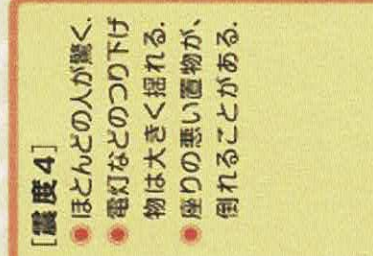 [震度4]
●ほとんどの人が驚く.
●電灯などのつり下げ
物は大きく揺れる.
●座りの悪い置物が、
倒れることがある.